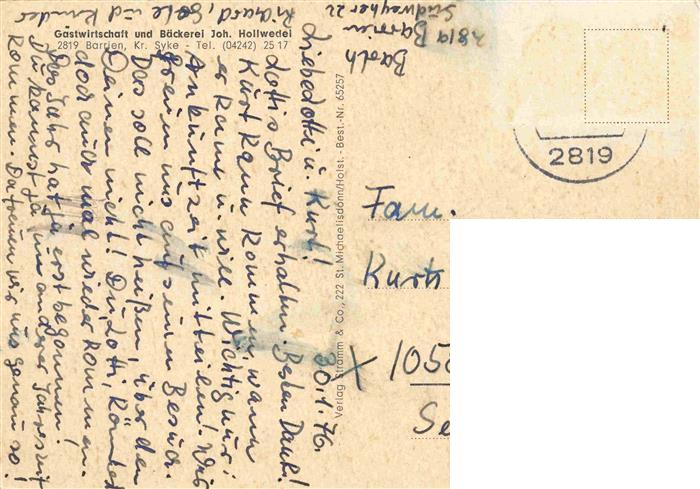 Gastwirtschaft und Bäckerei Joh. Hollwedel
2819 Barrien, Kr. Syke - Tel. (04242) 25 17
Barth
2819 Barrien
Südweyher 22
30.1.76.
Liebe Lotti u. Kurt!
Lottis Brief erhalten. Besten Dank!
Kurt kann kommen, wann
er kann u. will. Wichtig nur:
Ankunftzeit mitteilen! Wir
freuen uns auf seinen Besuch.
Das soll nicht heißen, über den
Deinen nicht! Du, Lotti, könntest
doch auch mal wieder kommen.
Das Jahr hat ja erst begonnen.
Du kannst ja zu anderer Jahreszeit
kommen. Da freuen wir uns genau so!
Richard, und Kinder
Verlag Stramm & Co., 222 St. Michaelisdonn/Holst. - Best.-Nr. 65257
2819
Fam.
Kurt
105
Se